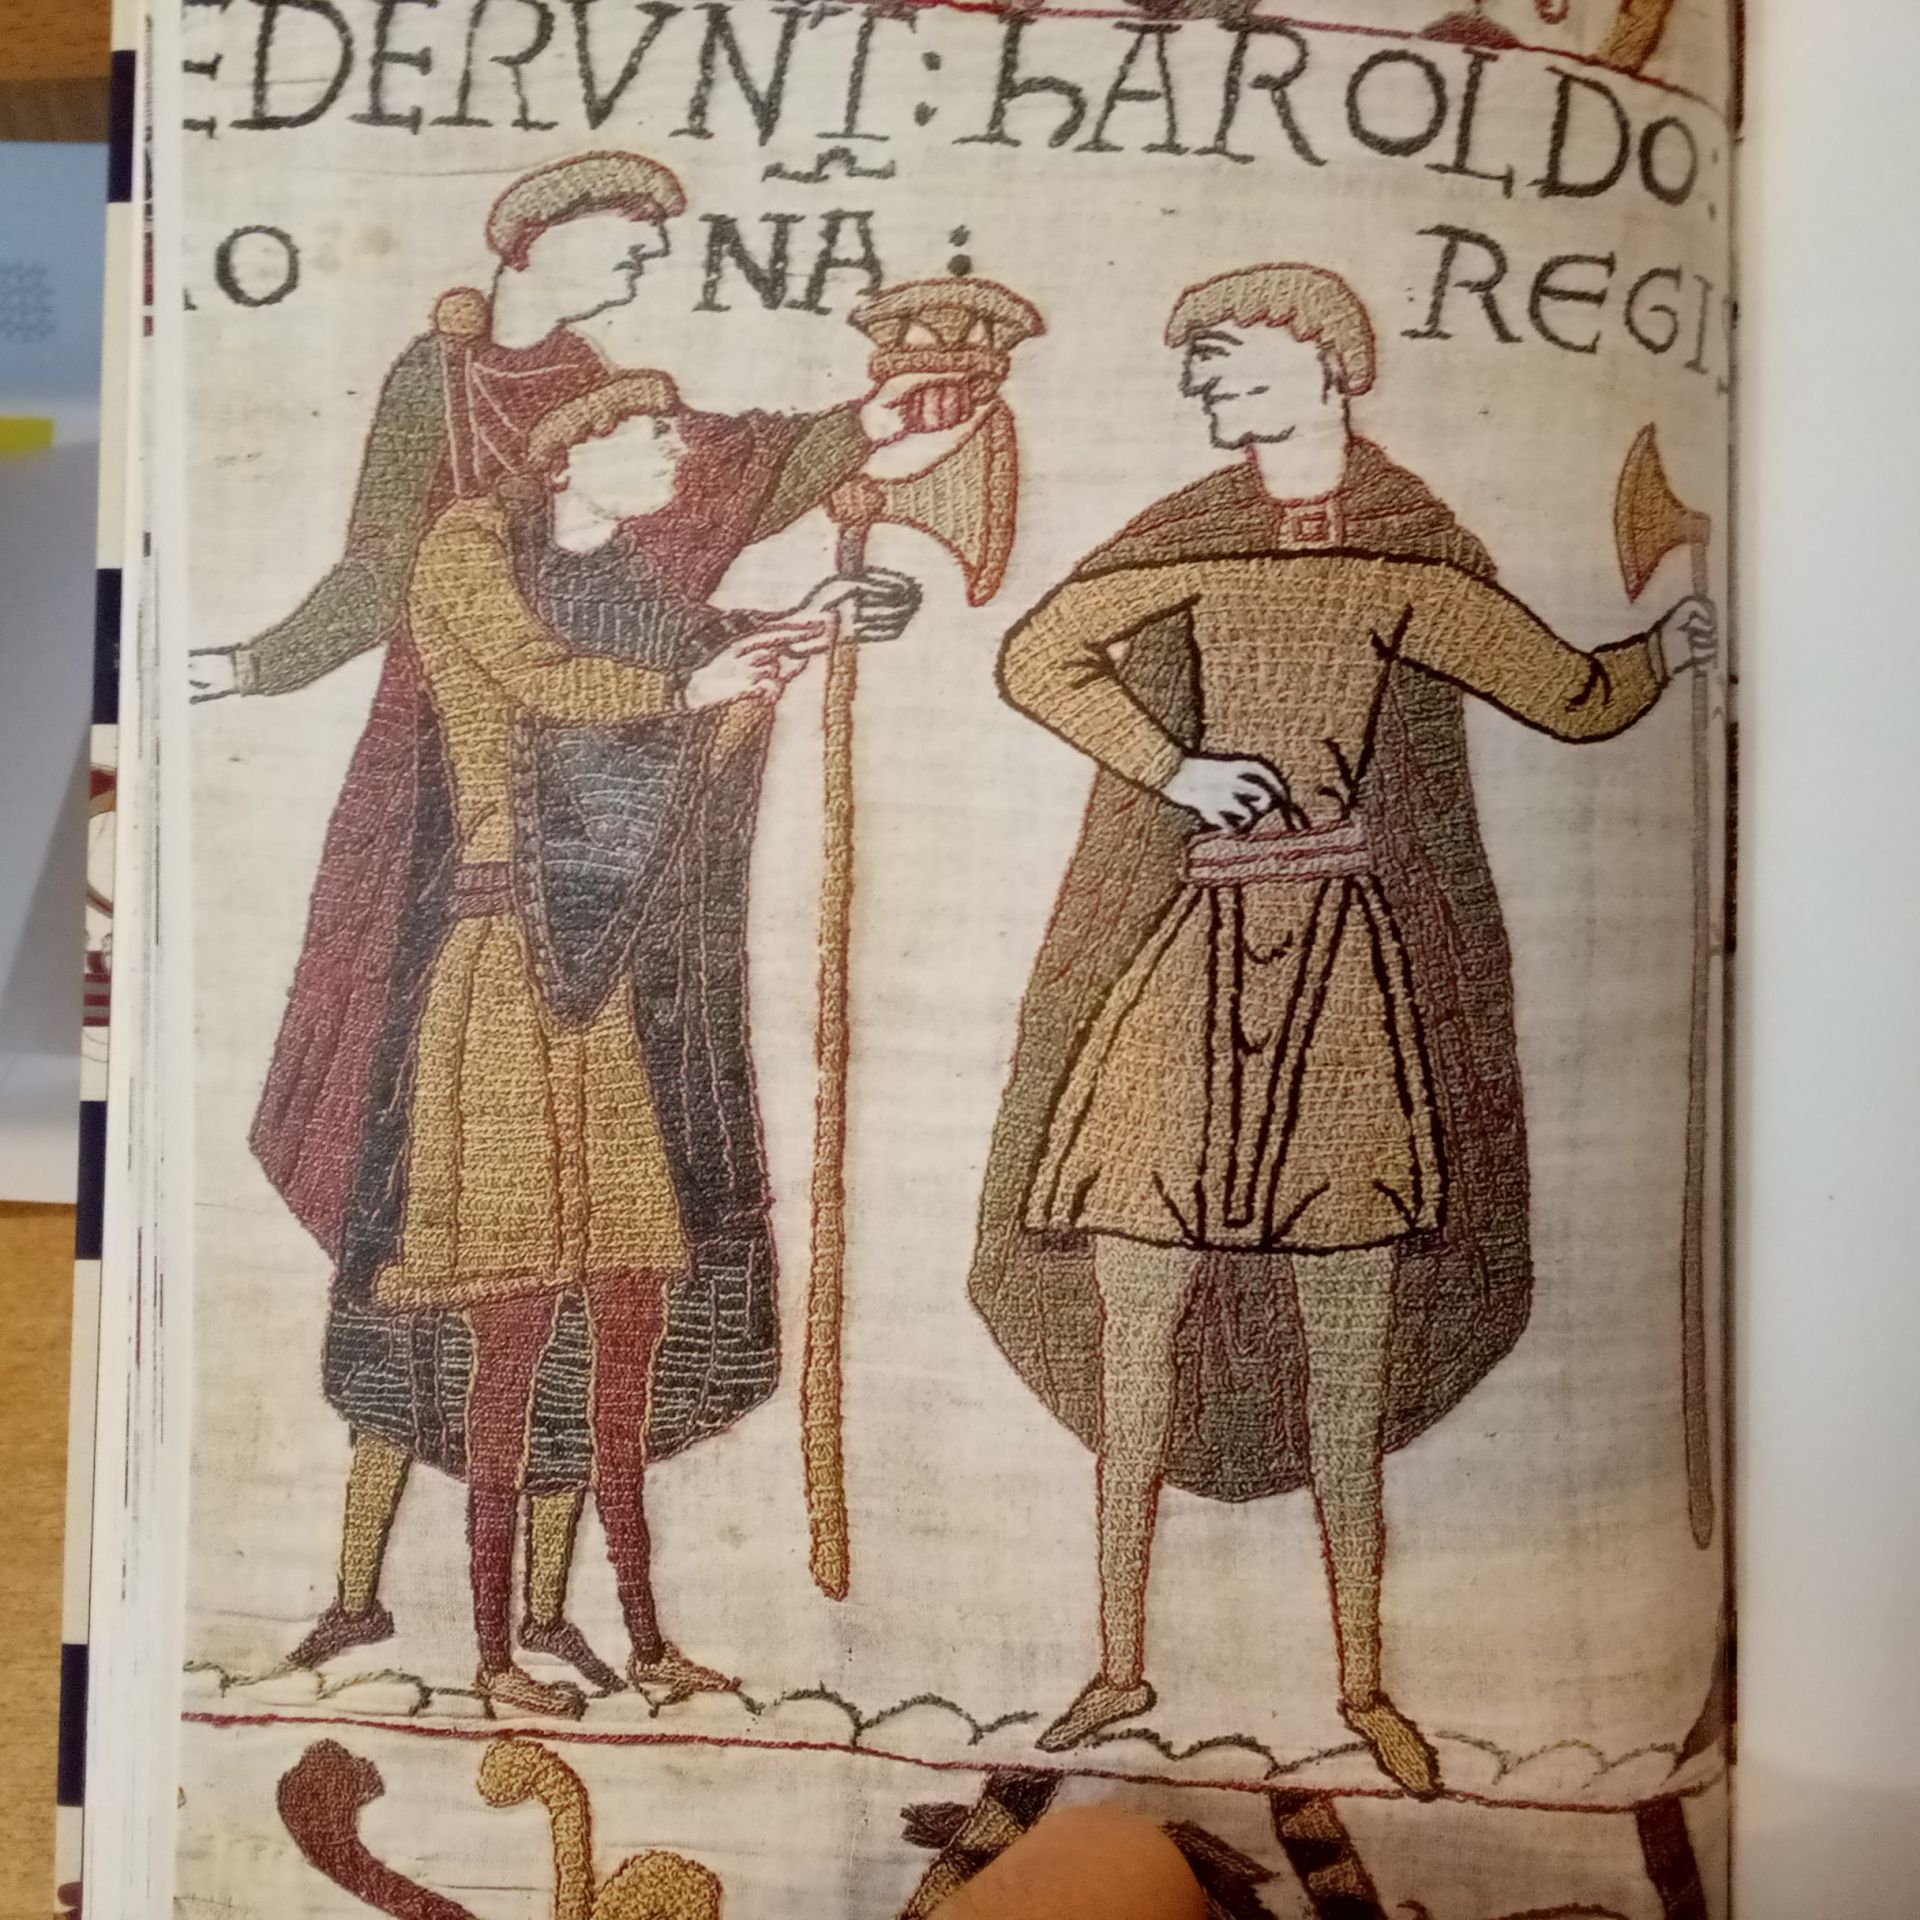 EDERVNT: hAROLDO:
O NA : REGIS